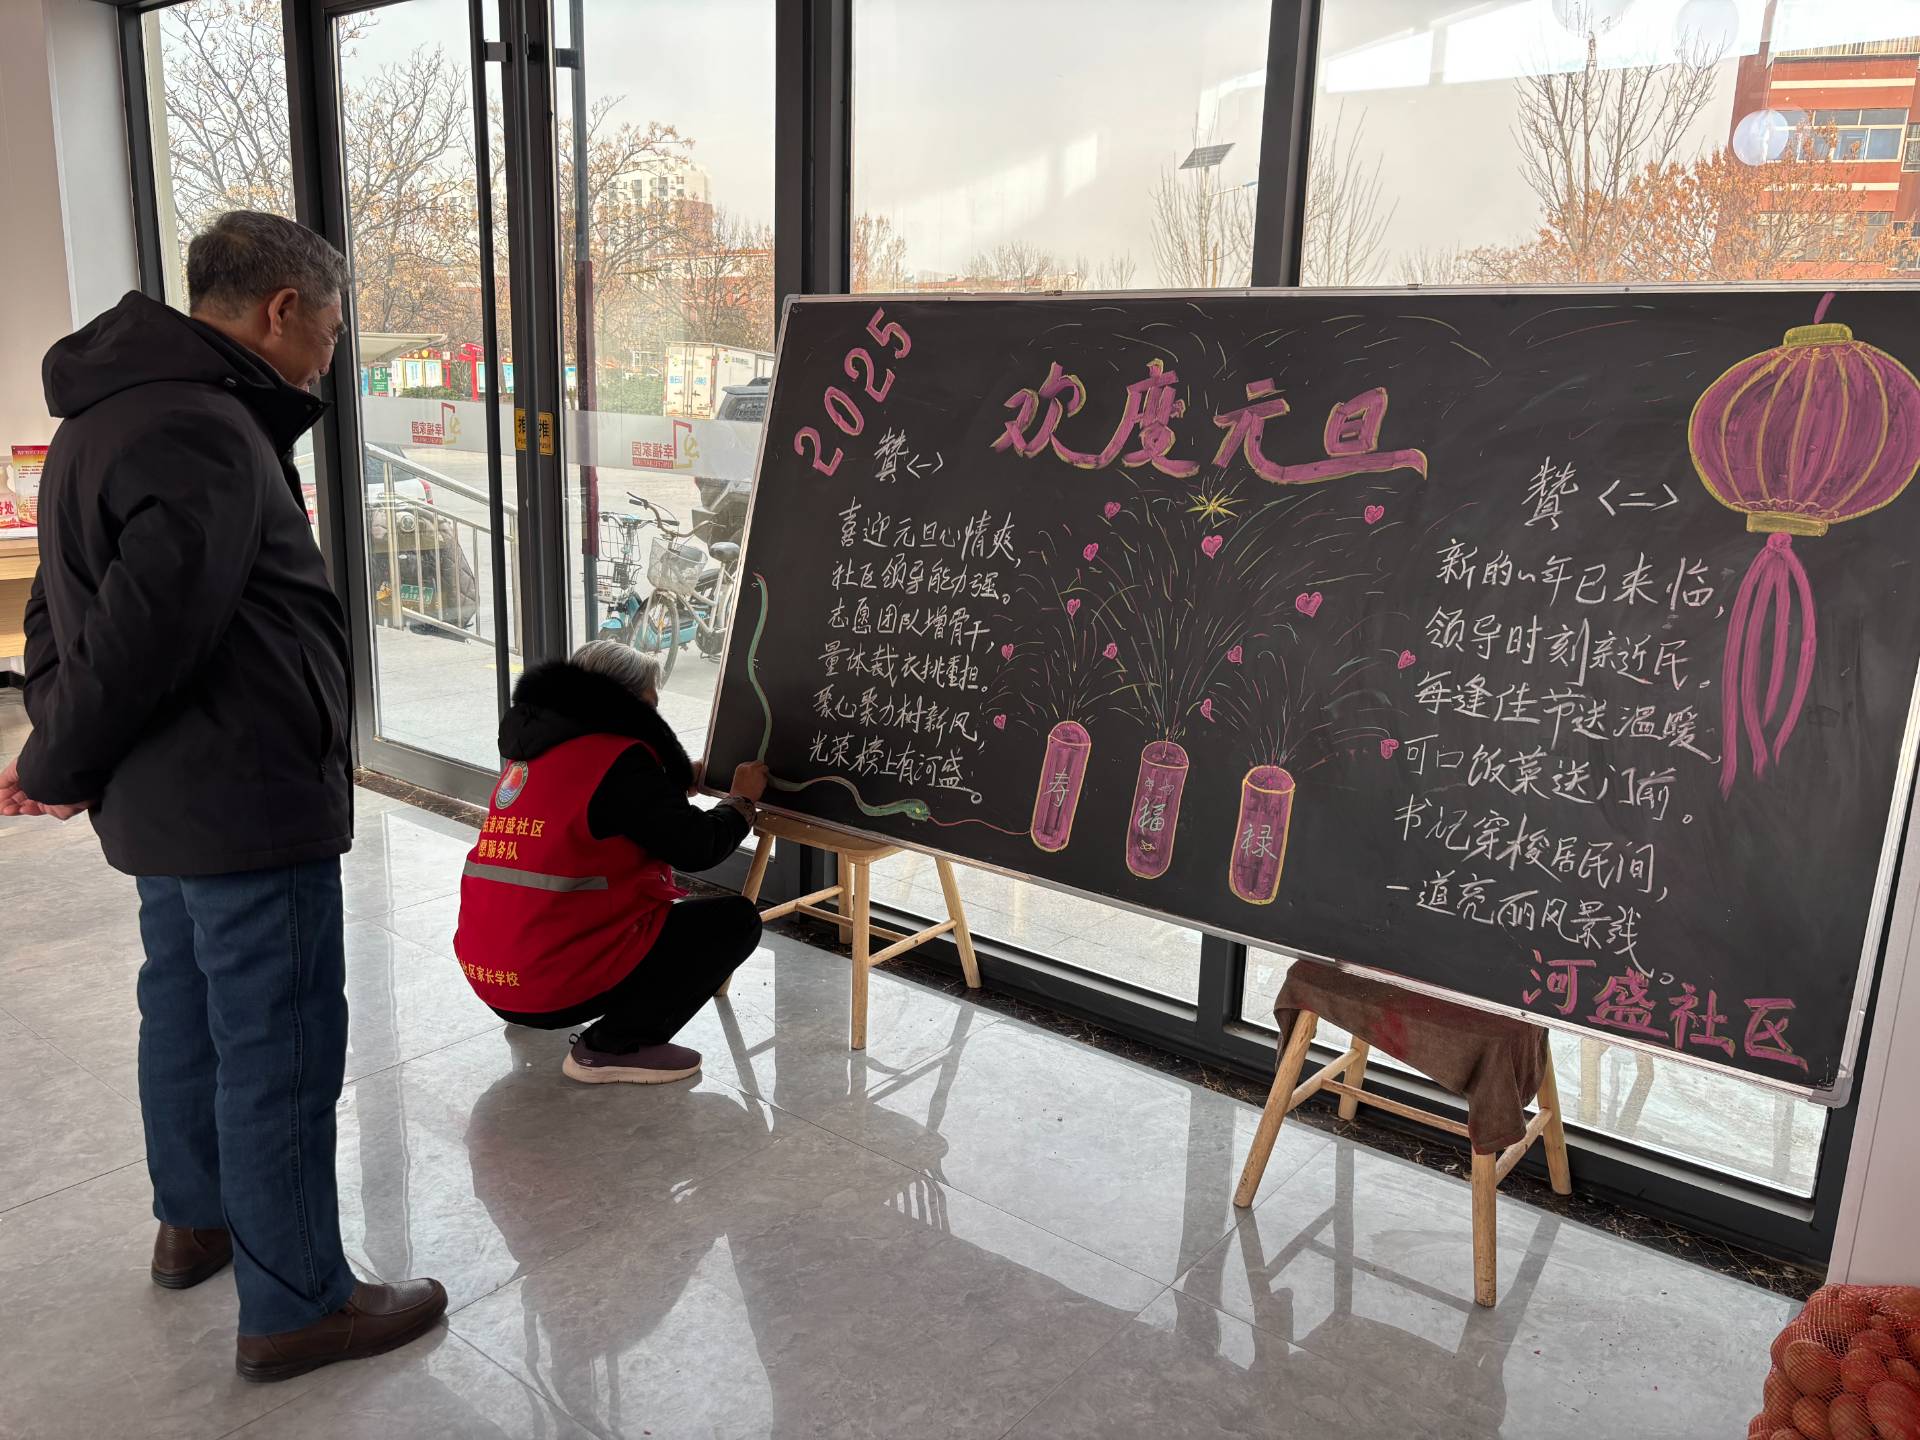 2025
欢度元旦
赞<一>
喜迎元旦心情爽，
社区领导能力强。
志愿团队增骨干，
量体裁衣挑重担。
聚心聚力树新风，
光荣榜上有河盛。
寿
福
禄
赞<二>
新的一年已来临，
领导时刻亲近民。
每逢佳节送温暖，
可口饭菜送门前。
书记穿梭居民间，
一道亮丽风景线。
河盛社区
道河盛社区
愿服务队
社区家长学校
推
推
幸福家园
幸福家园